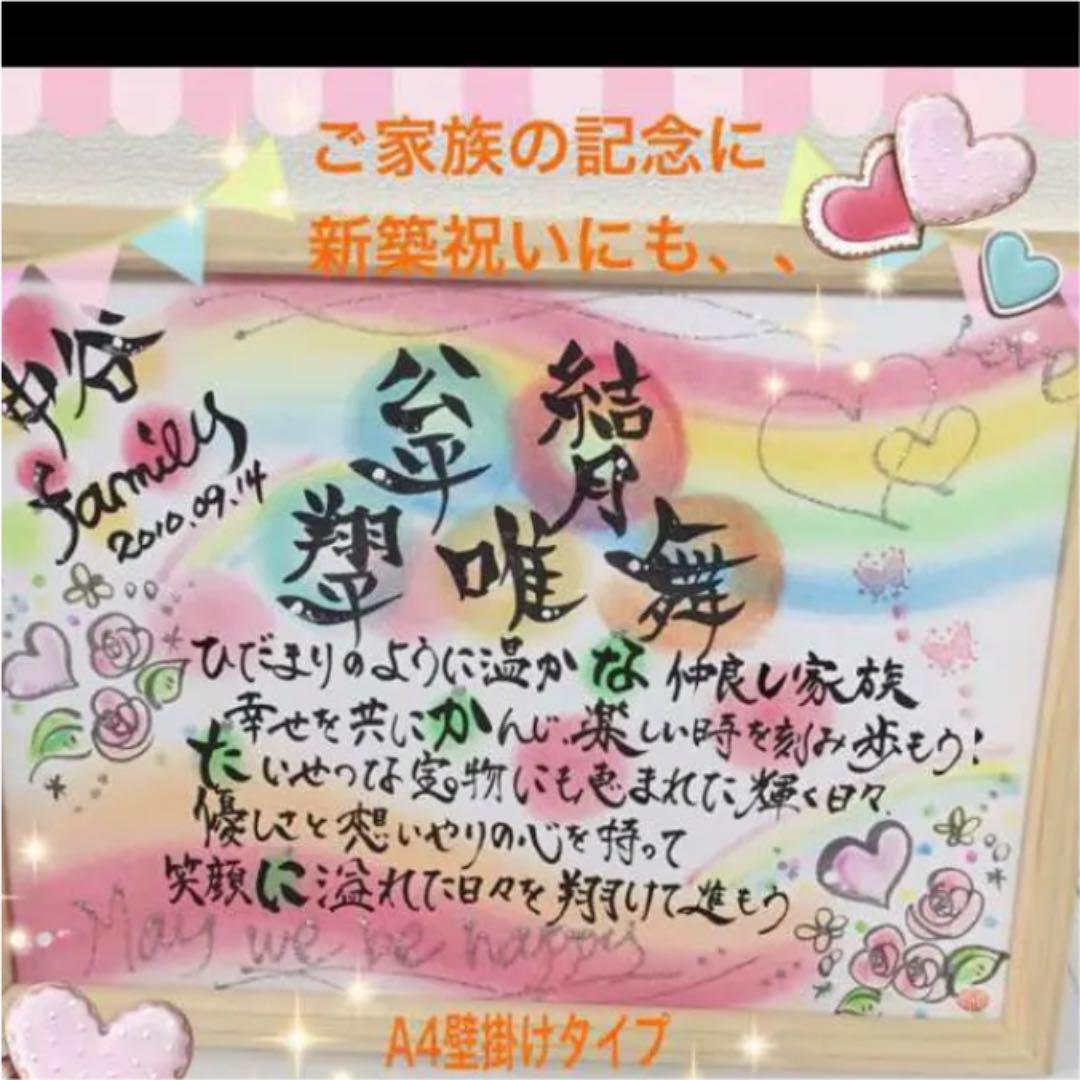 ご家族の記念に
新築祝いにも、、
中谷
family
2010.09.14
公平 結月
翔 唯 舞
ひだまりのように温かな仲良し家族
幸せを共にかんじ、楽しい時を刻み歩もう!
たいせつな宝物にも恵まれた輝く日々
優しさと想いやりの心を持って
笑顔に溢れた日々を翔けて進もう
May we be happy
A4壁掛けタイプ